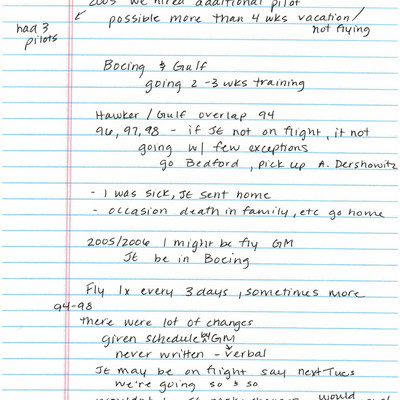 2005 we hired additional pilot
had 3 pilots
possible more than 4 wks vacation/
not flying
Boeing & Gulf
going 2-3 wks training
Hawker / Gulf overlap 94
96, 97, 98 - if JE not on flight, it not
going w/ few exceptions
go Bedford, pick up A. Dershowitz
- I was sick, JE sent home
- occasion death in family, etc go home
2005/2006 I might be fly GM
JE be in Boeing
Fly 1x every 3 days, sometimes more
94-98
there were lot of changes
given schedule by GM
never written - verbal
JE may be on flight say next Tues
we're going so & so
would